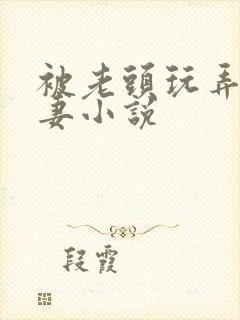 被老頭玩弄
妻小說
段霞